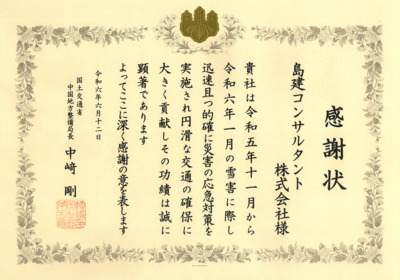 感謝状
島建コンサルタント
株式会社様
貴社は令和五年十一月から
令和六年一月の雪害に際し
迅速且つ的確に災害の応急対策を
実施され円滑な交通の確保に
大きく貢献しその功績は誠に
顕著であります
よってここに深く感謝の意を表します
令和六年六月十二日
国土交通省
中国地方整備局長
中﨑 剛